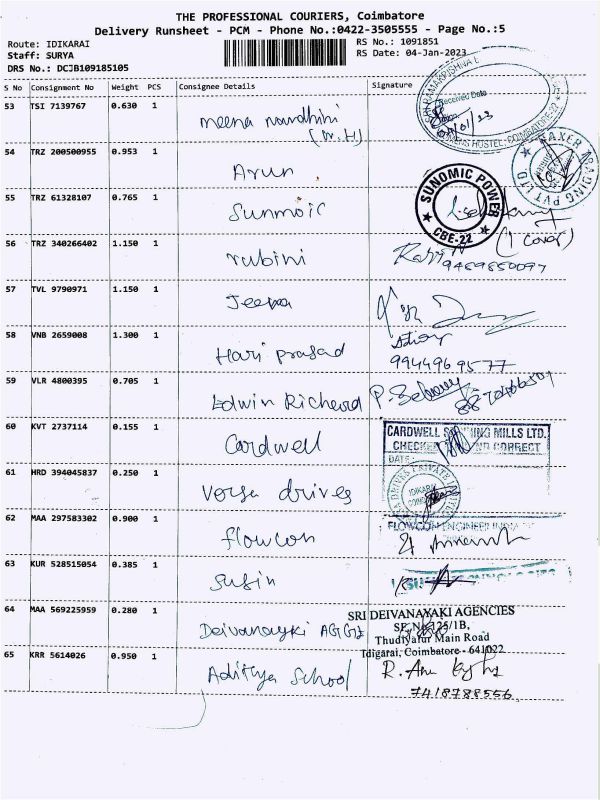 THE PROFESSIONAL COURIERS, Coimbatore
Delivery Runsheet - PCM - Phone No.:0422-3505555 - Page No.:5
Route: IDIKARAI
RS No.: 1091851
Staff: SURYA
RS Date: 04-Jan-2023
DRS No.: DCJB109185105
S No Consignment No Weight PCS Consignee Details Signature
Received Date
HOSTEL, COIMBATORE-22
53 TSI 7139767 0.630 1
54 TRZ 200500955 0.953 1 Arun
TRADING PVT LTD
55 TRZ 61328107 0.765 1 Sunmoic
SUNOMIC POWER
CBE-22
(1 cover)
56 TRZ 340266402 1.150 1 rubini
9489850097
57 TVL 9790971 1.150 1 Jeena
58 VNB 2659008 1.300 1 Hari prasad
9944969577
59 VLR 4800395 0.705 1 Edwin Richerd
60 KVT 2737114 0.155 1 Cardwell
CARDWELL MILLS LTD.
CHECKED CORRECT
DATE:
61 HRD 394045837 0.250 1 Versa drives
DRIVES PRIVATE
IDIKARAI
62 MAA 297583302 0.900 1 flowcon
FLOWCON ENGINEER INDIA
63 KUR 528515054 0.385 1 Subin
64 MAA 569225959 0.280 1 Deivanayki
SRI DEIVANAYAKI AGENCIES
SF.No.125/1B,
Thudiyalur Main Road
Idigarai, Coimbatore - 641022
65 KRR 5614026 0.950 1 Adithya School
7418788556